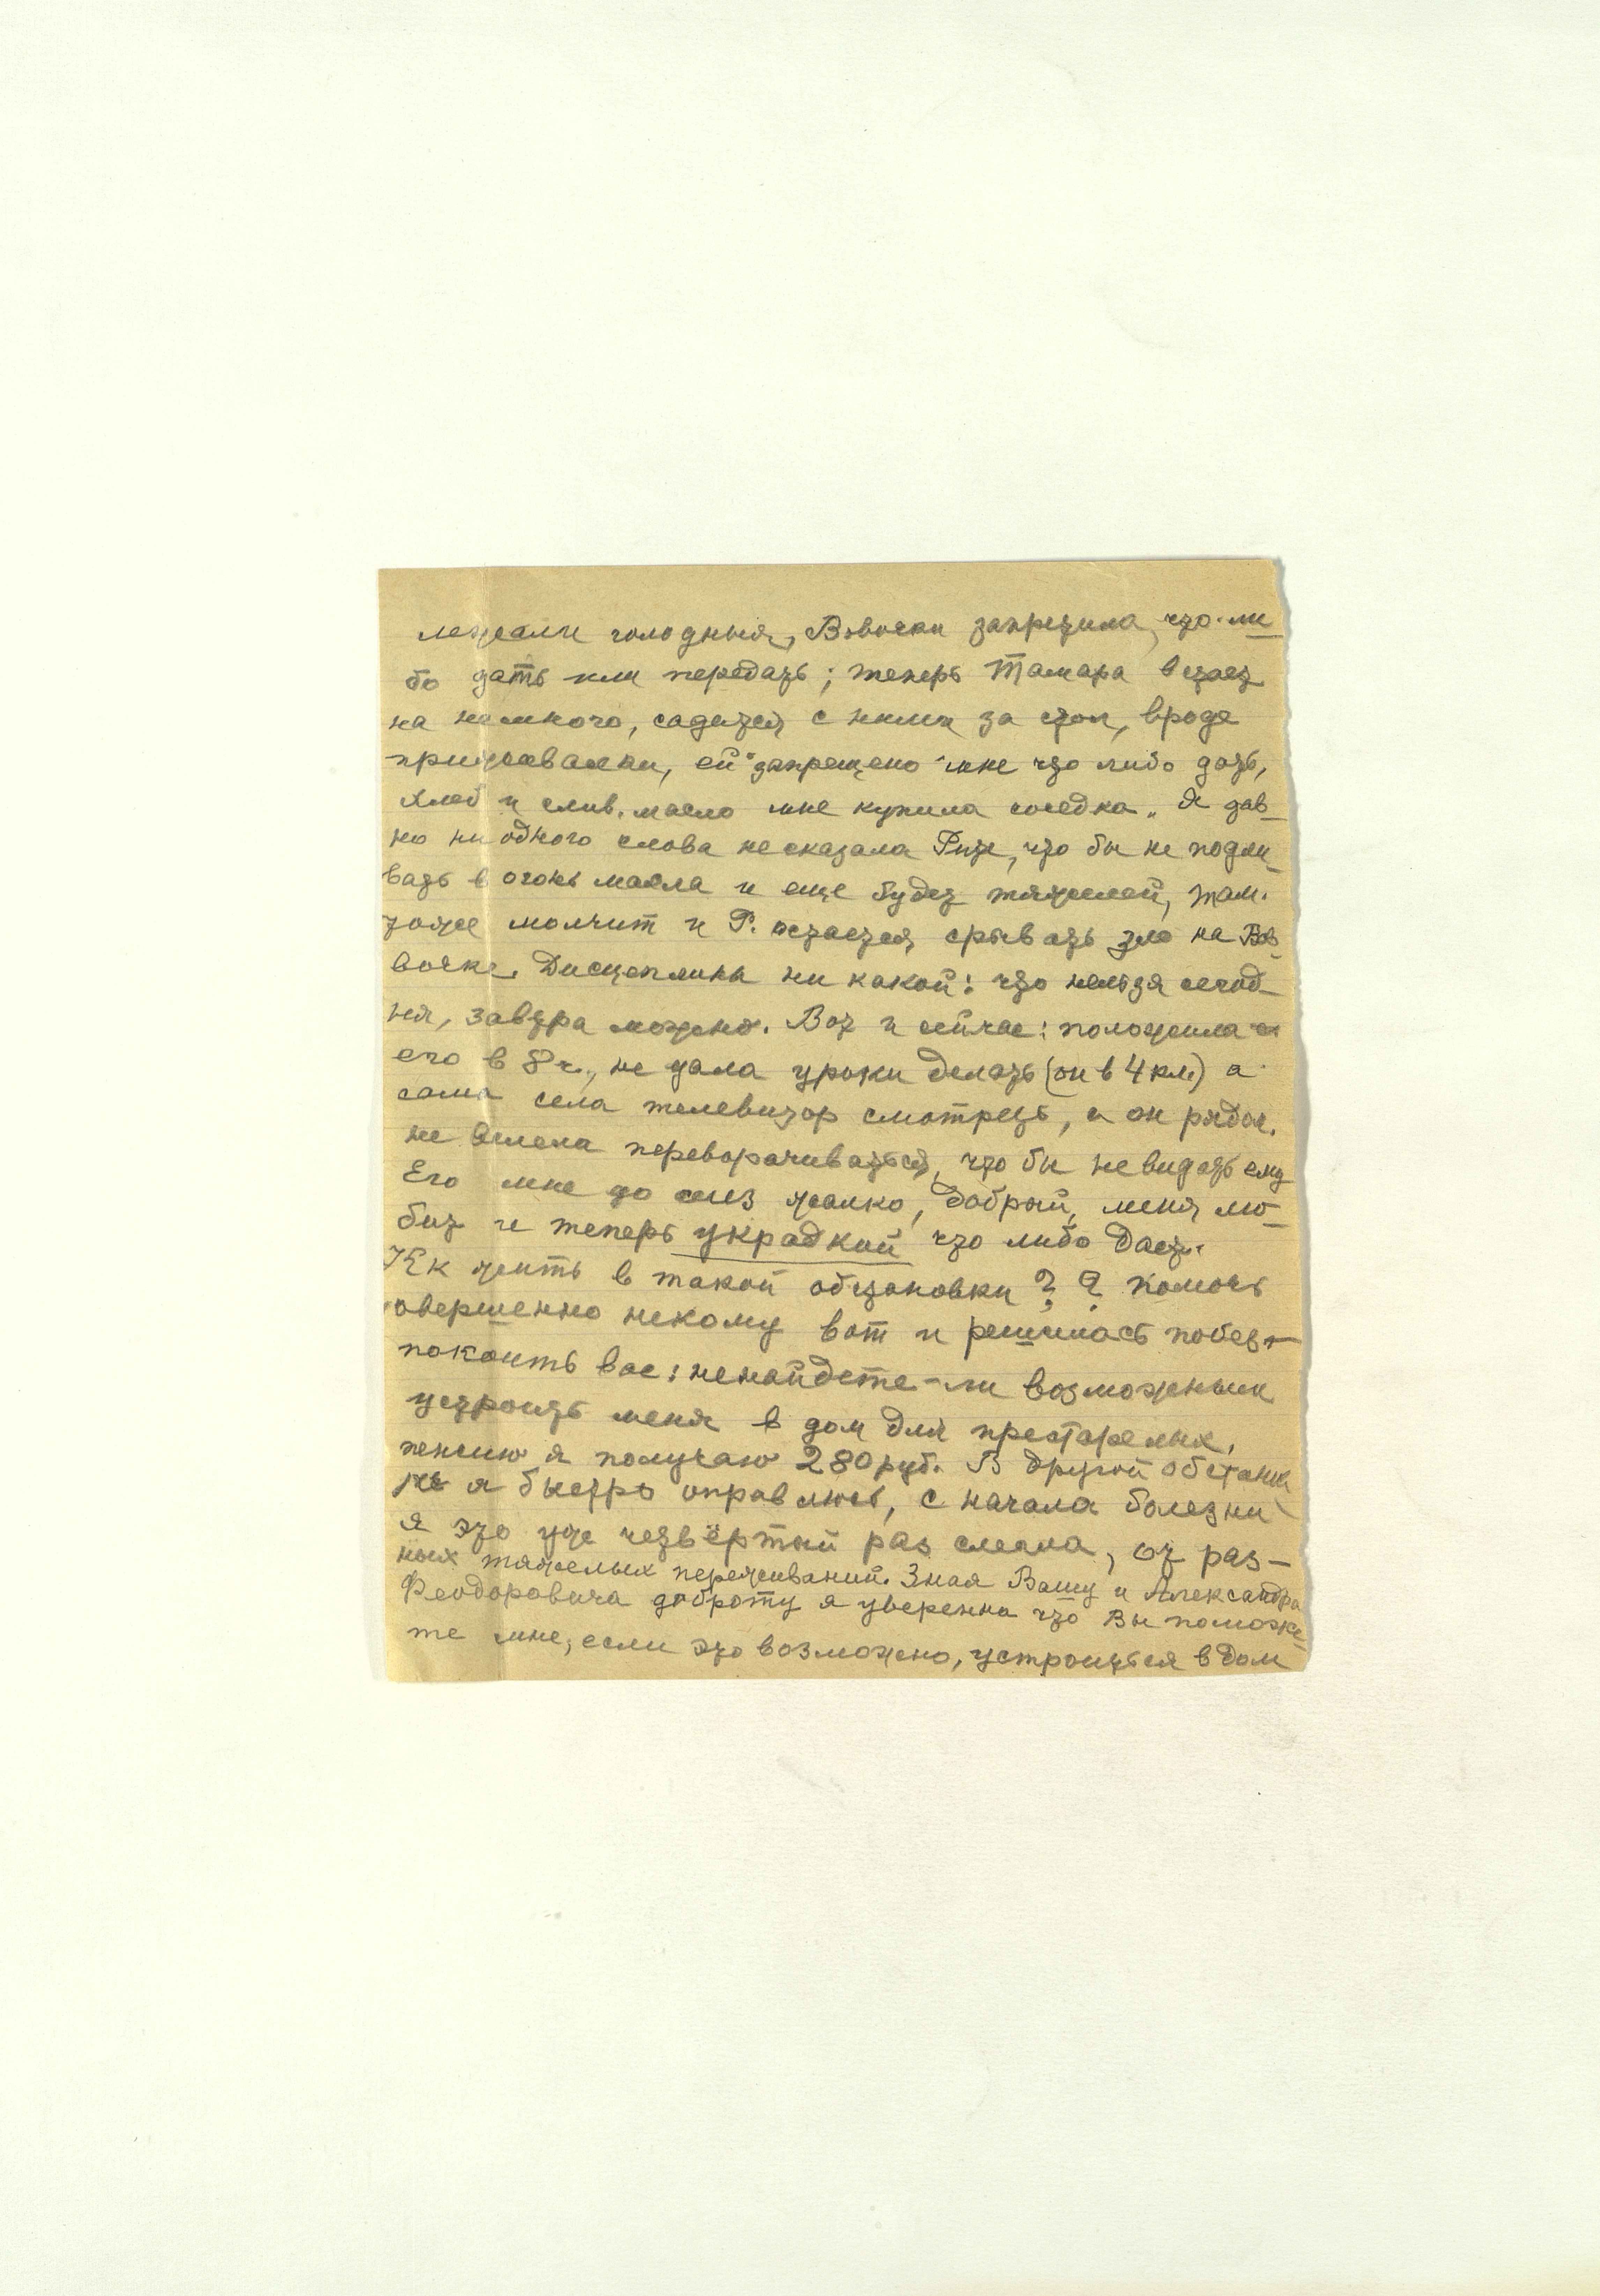 лежали голодныя, Вовочки запретила что-ли
бо дать или передать; теперь Тамара встает
на немного, садится с ними за стол, вроде
ей запрещено мне что либо дать,
хлеб и слив. масло мне купила соседка. Я дав-
но ни одного слова не сказала Рите, что бы не подли-
вать в огонь масла и еще будет тяжелей, Там.
тоже молчит и Р. остается срывать зло на Вов
вочке. Дисцеплины ни какой: что нельзя сегод-
ня, завтра можно. Вот и сейчас: положила
его в 8 ч., не дала уроки делать (он в 4 кл.) а
сама села телевизор смотреть, а он рядом.
не велела переворачиваться, что бы не видать ему
Его мне до слиз жалко, добрый, меня лю-
бит и теперь украдкой что либо даст.
Как жить в такой обстановки ? ? Помочь
совершенно некому вот и решилась побез-
покоить вас: ненайдете-ли возможным
устроить меня в дом для престарелых,
пенсию я получаю 280 руб. В другой обстанов
ке я быстро оправлюсь, с начала болезни
я это уже четвёртый раз слегла, от раз-
ных тяжелых переживаний. Зная Вашу и Александра
Феодоровича доброту я уверенна что Вы поможе-
те мне, если это возможно, устроиться в дом